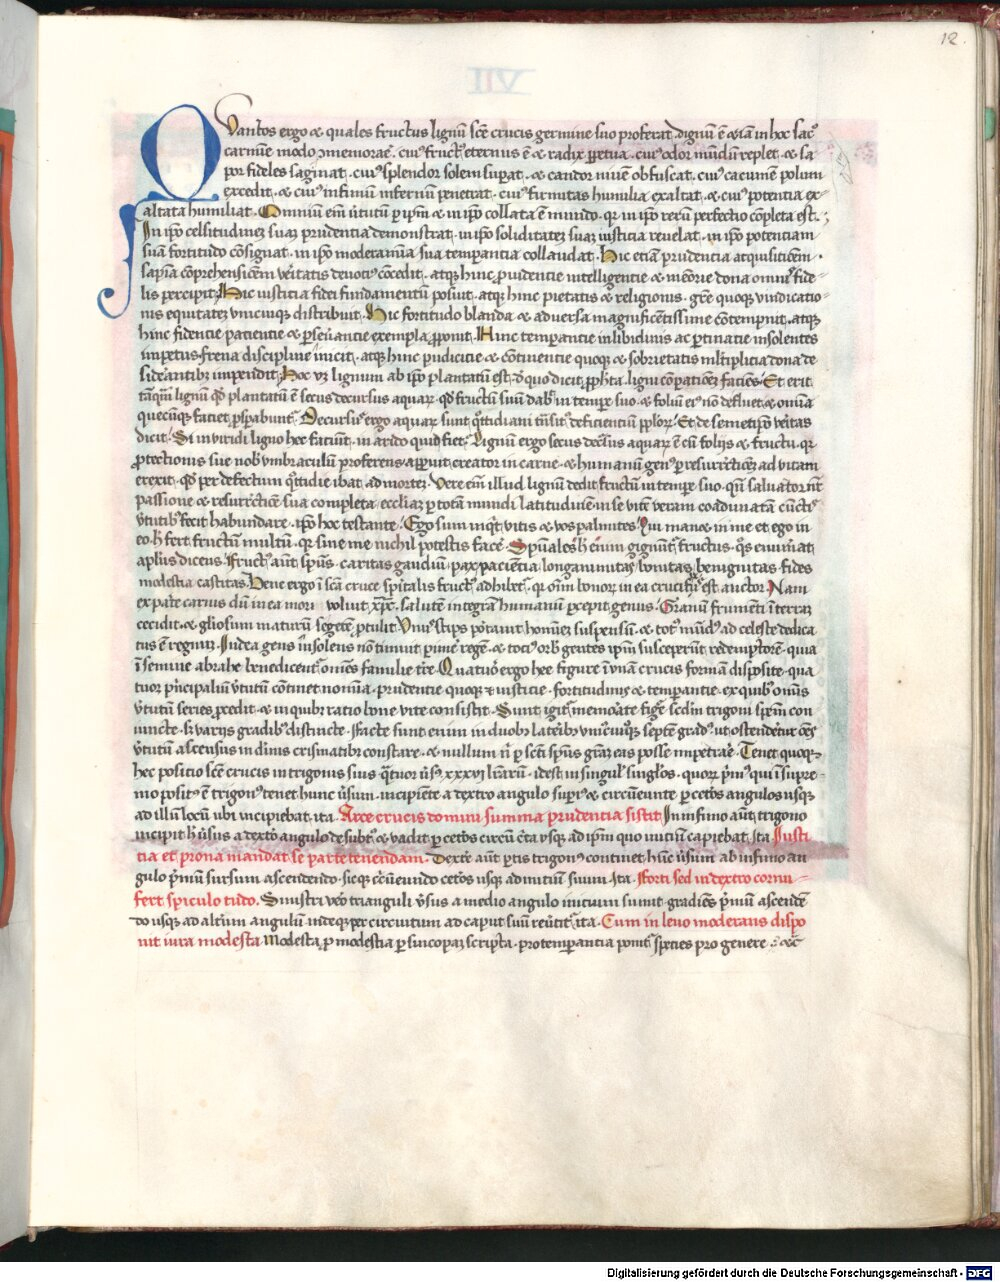 12.
Quantos ergo & quales fructus lignũ scẽ crucis germine suo proferat. dignũ ẽ etiã in hoc sacͦ
carmĩe modo ɔmemorare. cuiꝰ fructꝰ eternus ẽ & radix ꝑpetua. cuiꝰ odor mũdũ replet. & sa-
por fideles saginat. cuiꝰ splendor solem suꝑat. & candor niuẽ obfuscat. cuiꝰ cacumẽ polum
excedit. & cuiꝰ infimũ infernũ penetrat. cuiꝰ firmitas humilia exaltat. & cuiꝰ potentia ex-
altata humiliat. Omniũ em̃ ṽtutũ ꝑ ip̃m & in ip̃o collata ẽ mundo. qꝛ in ip̃o rerũ perfectio cõpleta est.
In ip̃o celsitudinẽ suaꝫ prudentia demonstrat. in ip̃o soliditateꝫ suaꝫ iusticia reuelat. in ip̃o potentiam
suã fortitudo cõsignat. in ip̃o moderamina sua temperantia collaudat. Hic etiã prudentia atquisiticẽm.
sapiã cõprehensicẽm veritatis deuotiꝰ cõcedit. atqꝫ hinc prudentie intelligencie & mẽorie dona omnibꝰ fide-
lis percipit. Hic iusticia fidei fundamentũ posuit. atqꝫ hinc pietatis & religionis. gr̃e quoqꝫ vindicatio-
nis equitateꝫ vnicuiqꝫ distribuit. Hic fortitudo blanda & aduersa magnificẽtissime cõtempnit. atqꝫ
hinc fidentie pacientie & ꝑseuerantie exempla ꝓponit. Hinc temperantie in libidinis ac ꝑtinatie insolentes
impetus frena discipline inicit. atqꝫ hinc pudicicie & cõtinentie quoqꝫ & sobrietatis multiplicia dona de-
siderantibꝫ impendit. Hoc vꝫ lignum ab ip̃o plantatũ est. de quo dicit ꝓpheta. ligni cõparationeꝫ faciens. Et erit
tãquam lignũ qd̃ plantatũ ẽ secus decursus aquarꝫ. qd̃ fructũ suũ dabit in tempore suo. & foliũ eiꝰ nõ defluet & omnia
quecũqꝫ faciet ꝓsperabuntᷓ. Decursꝰ ergo aquarꝫ sunt quotidiani transitꝰ deficientiũ populorꝫ. Et de semetip̃o veritas
dicit. Si in viridi ligno hec faciunt. in arido quid fiet. Lignũ ergo secus decursus aquarꝫ ẽ cũ folijs & fructu. qꝛ
ꝓtectionis sue nobis vmbraculũ proferens apparuit creator in carne. & humanũ genus ꝑ resurrecticẽm ad vitam
erexit. qd̃ per defectum quotidie ibat ad morteꝫ. Vere em̃ illud lignũ dedit fructũ in tempore suo. qm̃ saluator nr̃
passione & resurrecticẽ sua completa. eccliaꝫ ꝑ totã mundi latitudinem in se vite veram coadunatã cunctis
ṽtutibꝰ fecit habundare. ip̃o hoc testante. Ego sum inquit vitis & vos palmites. Qui manet in me et ego in
eo. hic fert fructũ multũ. qꝛ sine me nichil potestis facere. Spũales hic enim gignuntᷓ fructus. quos enumerat
aplũs dicens. Fructꝰ aut̃ spũs. caritas gaudiũ. pax paciẽtia. longanimitas. bonitas. benignitas. fides
modestia castitas. Bene ergo ĩ scã cruce spiritalis fructꝰ adhibetᷓ. qꝛ oim̃ bonorꝫ in ea crucifixꝰ est auctor. Nam
ex parte carnis dũ in ea mori voluit xp̃c. salutẽ integrã humanũ ꝑcepit genus. Granũ frumẽti ĩ terraꝫ
cecidit. & gliosum maturũ segetẽ ꝑtulit. Vniꝰ stips portauit hominẽꝫ suspensũ. & totꝰ mũdꝰ ad celeste dedica-
tus ẽ regnuꝫ. Iudea gens insolens nõ timuit punire regẽ. & tociꝰ orbis gentes ip̃m susceperũt redemptorẽ. quia
ĩ semine abrahe benedicentᷓ omẽs familie tr̃e. Quatuor ergo hee figure ĩ vnã crucis formã disposite. qua-
tuor principaliũ ṽtutũ cõtinet nomina. prudentie quoqꝫ & iusticie. fortitudinis & temperantie. ex quibꝰ omnis
ṽtutũ series ꝓcedit. & in quibꝫ ratio bone vite consistit. Sunt igitᷓ memorate figure scdm̃ trigoni speciem con-
iuncte. sed varijs gradibꝰ distincte. Facte sunt enim in duobꝰ lateribꝰ vniꝰcuiusqꝫ septẽ gradꝰ. ut ostendẽtur oẽs
ṽtutũ ascensus in diuinis crismatibꝫ constare. & nullum nisi ꝑ scti spũs grãꝫ eas posse impetrare. Tenet quoqꝫ
hec positio scẽ crucis in trigonis suis quatuor ũsꝰ xxxvi lrãrũ. id est in singulis singulos. quorꝫ primꝰ qui ĩ supre-
mo positꝰ ẽ trigonꝰ tenet hunc ũsum. incipiẽte a dextro angulo superiꝰ & circũeunte ꝑ ceteros angulos usqꝫ
ad illũ locũ ubi incipiebat. ita. Arce crucis domini summa prudentia sistit. In infimo aut̃ trigono
incipit hic ũsus a dextro angulo desubtꝰ & vadit ꝑ ceteros circũ cetera usqꝫ ad ip̃m quo initiũ capiebat. ita. Iusti
tia et prona mandat se parte tenendam. Dextre aut̃ ꝑtis trigonꝰ continet hũc ũsum ab infimo an-
gulo primũ sursum ascendendo. sicqꝫ circũeundo ceteros usqꝫ ad initiũ suum. Ita. Forti sed in dextro cornu
fert spiculo tudo. Sinistri vero trianguli ũsus a medio angulo initium sumit. gradiẽs primũ ascendẽ
do usqꝫ ad alterum angulũ. indeqꝫ per circuitum ad caput suũ reuertitᷓ. ita. Cum in leuo moderans dispo
nit iura modesta. Modesta ꝓ modestia ꝑ sincopaꝫ scripta. pro temperantia ponitᷓ. species pro genere. &c̃
Digitalisierung gefördert durch die Deutsche Forschungsgemeinschaft - DFG